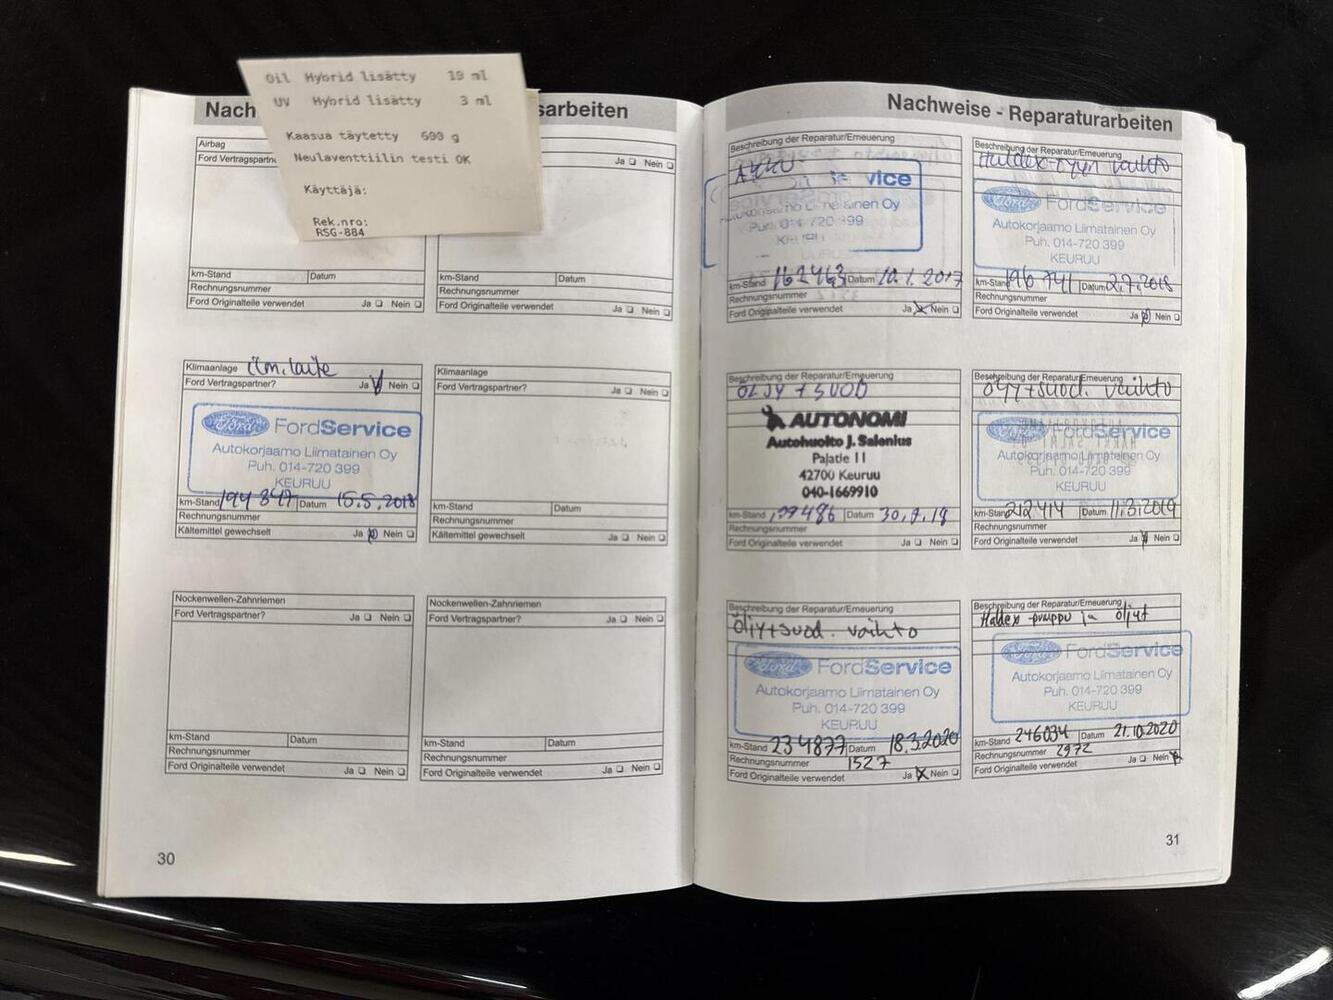 Oil Hybrid lisätty 19 ml
UV Hybrid lisätty 3 ml
Kaasua täytetty 699 g
Neulaventtiilin testi OK
Käyttäjä:
Rek.nro:
RSG-884
Nach
sarbeiten
Airbag
Ford Vertragspartn
Ja ❏ Nein ❏
km-Stand Datum
Rechnungsnummer
Ford Originalteile verwendet Ja ❏ Nein ❏
km-Stand Datum
Rechnungsnummer
Ford Originalteile verwendet Ja ❏ Nein ❏
Klimaanlage ilm.laite
Ford Vertragspartner? Ja Nein ❏
Ford FordService
Autokorjaamo Liimatainen Oy
Puh. 014-720 399
KEURUU
km-Stand 194 847 Datum 15.5.2018
Rechnungsnummer
Kältemittel gewechselt Ja Nein ❏
Klimaanlage
Ford Vertragspartner? Ja ❏ Nein ❏
km-Stand Datum
Rechnungsnummer
Kältemittel gewechselt Ja ❏ Nein ❏
Nockenwellen-Zahnriemen
Ford Vertragspartner? Ja ❏ Nein ❏
km-Stand Datum
Rechnungsnummer
Ford Originalteile verwendet Ja ❏ Nein ❏
Nockenwellen-Zahnriemen
Ford Vertragspartner? Ja ❏ Nein ❏
km-Stand Datum
Rechnungsnummer
Ford Originalteile verwendet Ja ❏ Nein ❏
30
Nachweise - Reparaturarbeiten
Beschreibung der Reparatur/Erneuerung
AKKU
vice
Oy
399
km-Stand 162463 Datum 2017
Rechnungsnummer
Ford Originalteile verwendet Ja Nein ❏
Beschreibung der Reparatur/Erneuerung
Haldex-öljyn vaihto
Ford FordService
Autokorjaamo Liimatainen Oy
Puh. 014-720 399
KEURUU
km-Stand 196 741 Datum 2.7.2018
Rechnungsnummer
Ford Originalteile verwendet Ja Nein ❏
Beschreibung der Reparatur/Erneuerung
ÖLJY + SUOD
AUTONOMI
Autohuolto J. Salenius
Palatie 11
42700 Keuruu
040-1669910
km-Stand Datum
Rechnungsnummer
Ford Originalteile verwendet Ja ❏ Nein ❏
Beschreibung der Reparatur/Erneuerung
öljy+suod. vaihto
Ford FordService
Autokorjaamo Liimatainen Oy
Puh. 014-720 399
KEURUU
km-Stand 212414 Datum 11.3.2019
Rechnungsnummer
Ford Originalteile verwendet Ja Nein ❏
Beschreibung der Reparatur/Erneuerung
öljy+suod. vaihto
Ford FordService
Autokorjaamo Liimatainen Oy
Puh. 014-720 399
KEURUU
km-Stand 234877 Datum 18.3.2020
Rechnungsnummer 1527
Ford Originalteile verwendet Ja Nein ❏
Beschreibung der Reparatur/Erneuerung
Haldex pumppu ja öljyt
Ford FordService
Autokorjaamo Liimatainen Oy
Puh. 014-720 399
KEURUU
km-Stand 246034 Datum 21.10.2020
Rechnungsnummer 2972
Ford Originalteile verwendet Ja ❏ Nein
31